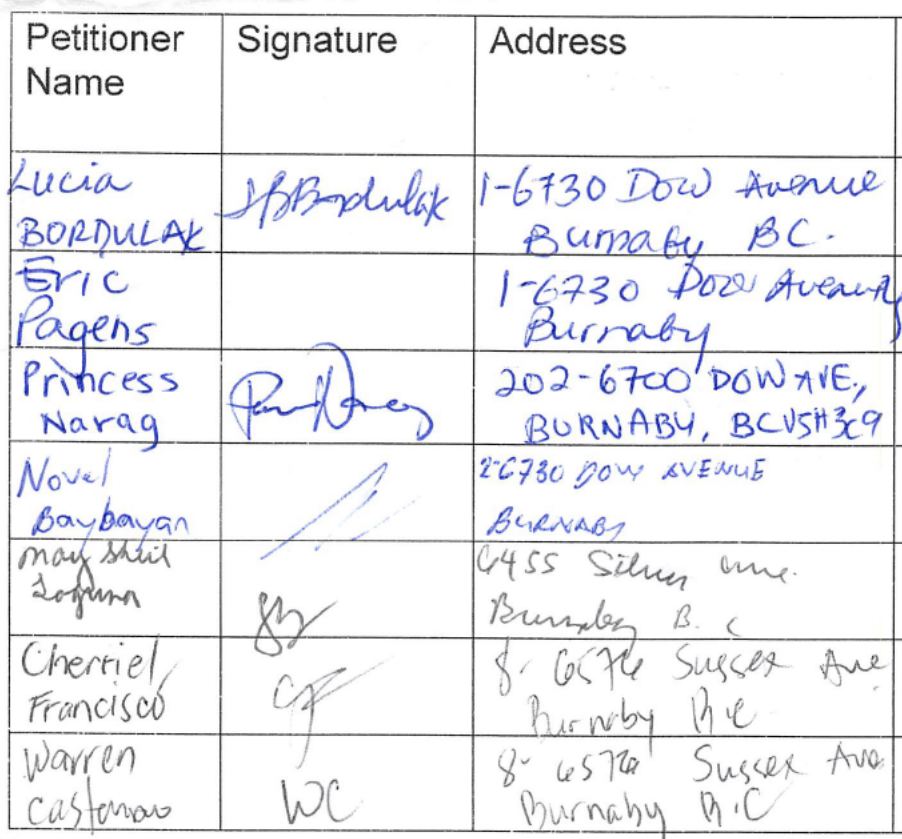 Petitioner Name
Signature
Address
Lucia BORDULAK
Bordulak
1-6730 Dow Avenue
Burnaby BC.
Eric Pagens
1-6730 Dow Avenue
Burnaby
Princess Narag
202-6700 DOW AVE,
BURNABY, BC V5H3C9
Novel Baybayan
2-6730 DOW AVENUE
BURNABY
May
6455 Silver ave.
Burnaby B.C
Cherriel Francisco
CF
8- Sussex Ave
Burnaby B.C
Warren
WC
8- Sussex Ave
Burnaby B.C